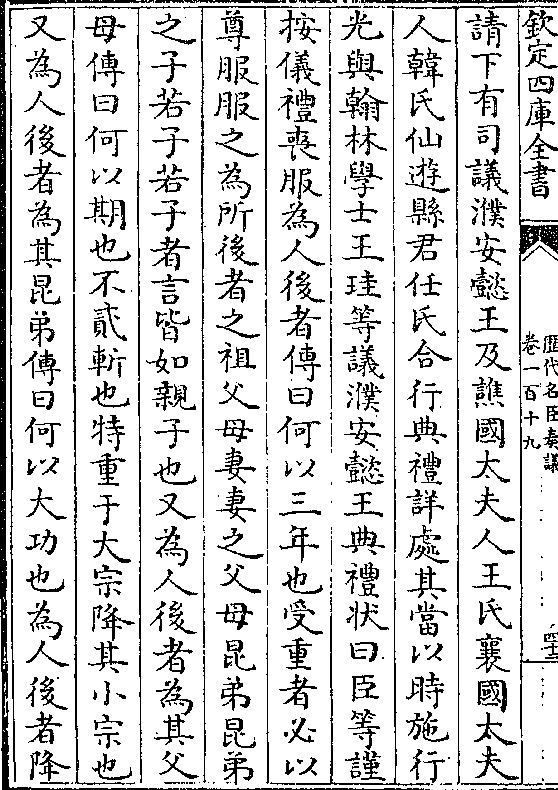 欽定四庫全書
歷代名臣奏議
卷一百十九
請下有司議濮安懿王及譙國太夫人王氏襄國太夫
人韓氏仙遊縣君任氏合行典禮詳處其當以時施行
光與翰林學士王珪等議濮安懿王典禮狀曰臣等謹
按儀禮喪服為人後者傳曰何以三年也受重者必以
尊服服之為所後者之祖父母妻妻之父母昆弟昆弟
之子若子若子者言皆如親子也又為人後者為其父
母傳曰何以期也不貳斬也特重于大宗降其小宗也
又為人後者為其昆弟傳曰何以大功也為人後者降